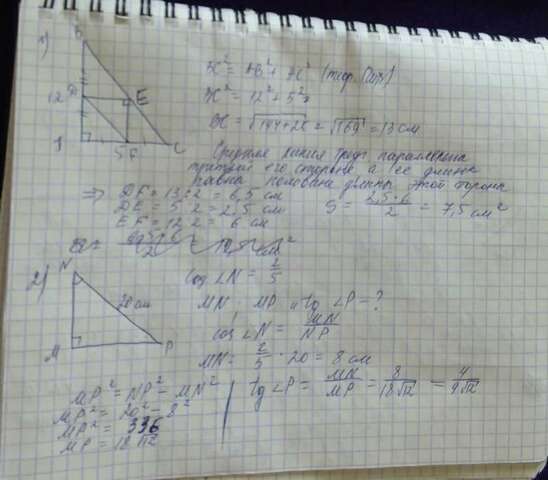 1)
B
12 D
E
5 F
C
BC² = AB² + AC² (теор. Пиф)
BC² = 12² + 5²
BC = √144+25 = √169 = 13 см
Средняя линия треуг. параллельна
третьей его стороне а её длина
равна половине длины этой стороны
=> DF = 13:2 = 6,5 см
DE = 5:2 = 2,5 см
EF = 12:2 = 6 см
S = 2,5·6 / 2 = 7,5 см²
2)
N
20 см
M
P
cos ∠N = 2/5
MN; MP и tg ∠P = ?
cos ∠N = MN/NP
MN = 2/5 · 20 = 8 см
MP² = NP² − MN²
MP² = 20² − 8²
MP² = 336
MP = 18√12
tg ∠P = MN/MP = 8/18√12 = 4/9√12